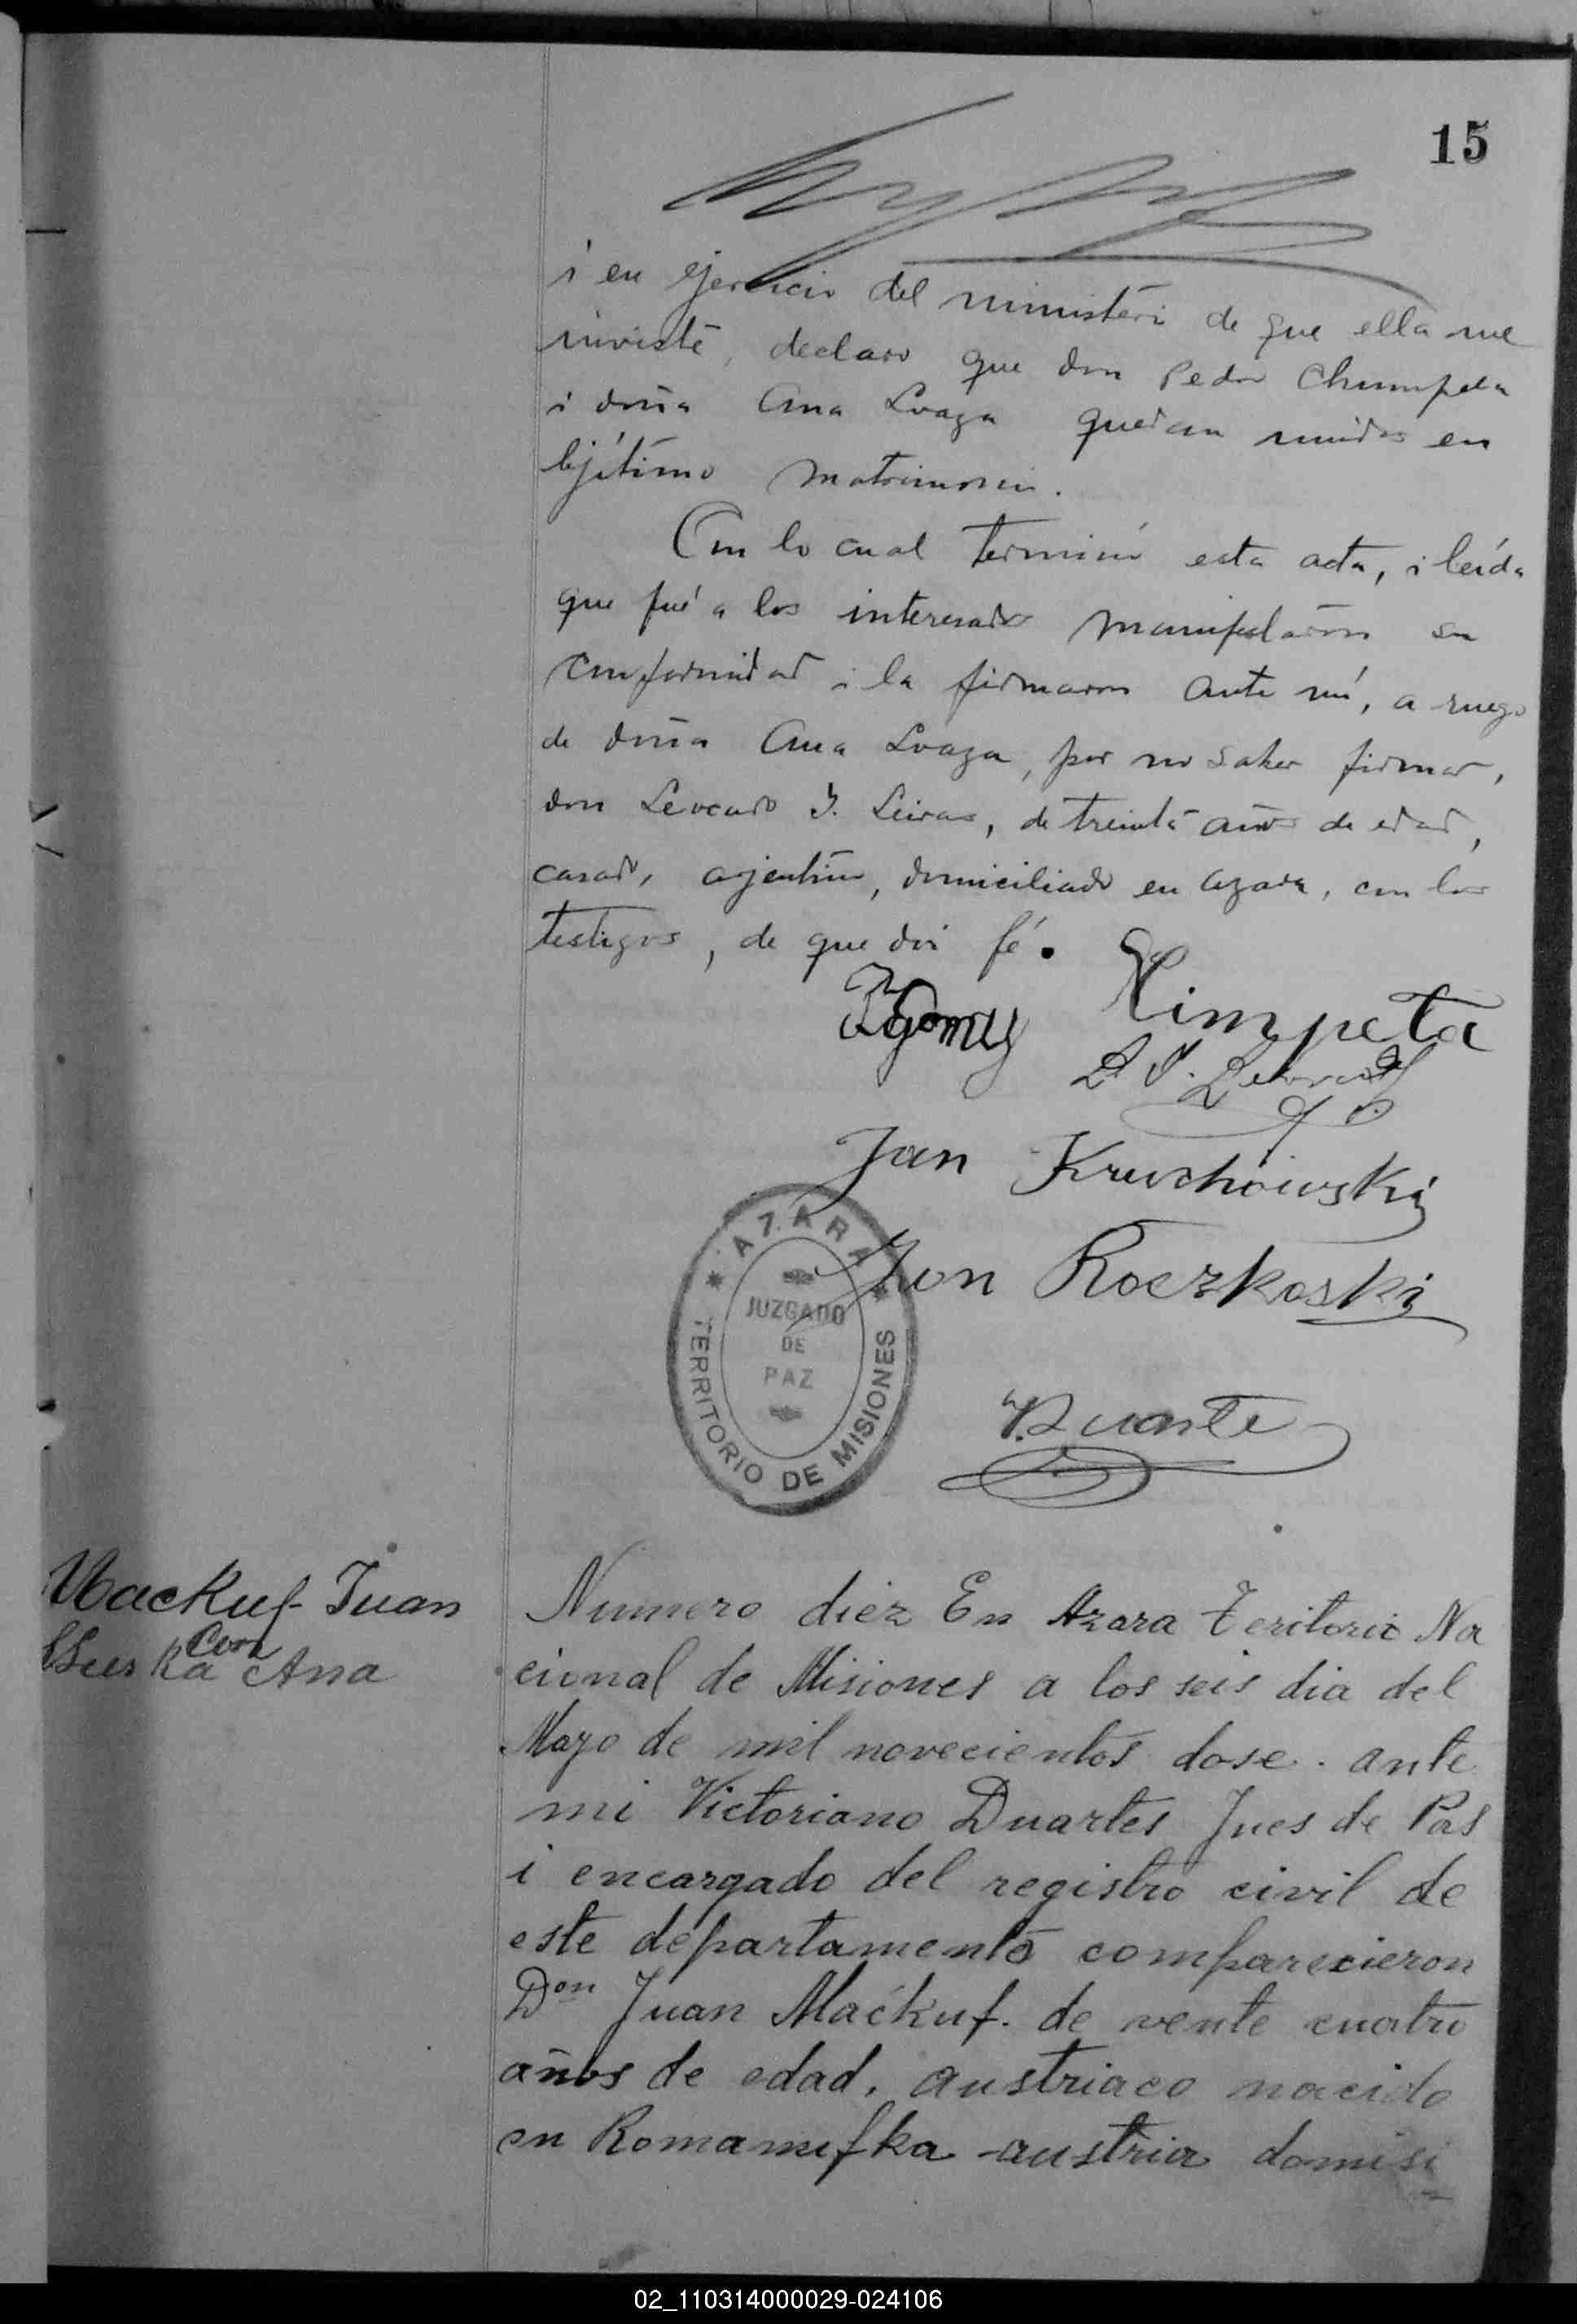 15
i en ejercicio del ministerio de que ella me
inviste, declaro que don Pedro Chumpeta
i doña Ana Loaga quedan unidos en
lejítimo matrimonio.
Con lo cual terminó esta acta, i leída
que fué a los interesados manifestaron su
conformidad i la firmaron ante mí, a ruego
de doña Ana Loaga, por no saber firmar,
don Leocado I. Leivas, de treinta años de edad,
casado, arjentino, domiciliado en Azara, con los
testigos, de que doi fé.
Ximpeta
Jan Kruchowski
Jon Roczkoski
AZARA
JUZGADO
DE
PAZ
TERRITORIO DE MISIONES
V. Duarte
Mackuf Juan
Con
Ana
Numero diez En Azara Teritorio Na
cional de Misiones a los seis dia del
Mayo de mil novecientos dose. ante
mi Victoriano Duartes Jues de Pas
i encargado del registro civil de
este departamento comparecieron
Don Juan Maćkuf. de vente cuatro
años de edad, austriaco nacido
en Romanufka -austria domisi
02_110314000029-024106